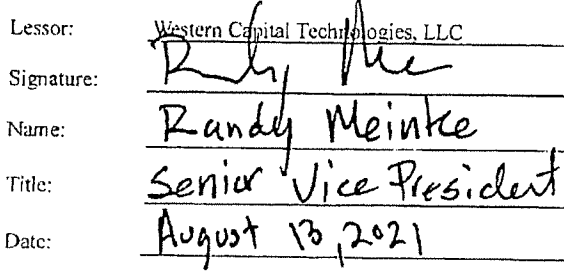 Lessor: Western Capital Technologies, LLC
Signature:
Name: Randy Meintke
Title: Senior Vice President
Date: August 13, 2021